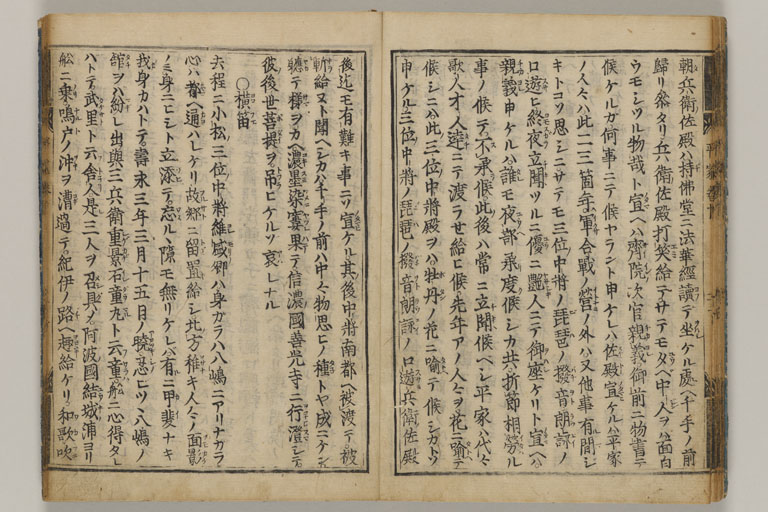 朝兵衛佐殿ハ持佛堂ニ法華經讀テ坐ケル處ヘ千手ノ前
歸リ參タリ兵衛佐殿打笑給テサテモタヘ中人ヲハ面白
ウモシツル物哉ト宜ヘハ齊院次官親義御前ニ物書テ
候ケルカ何事ニテ候ヤラント申ケレハ佐殿宜ケルハ平家
ノ人々ハ此二三箇年軍合戰ノ營ノ外ハ又他事有間シ
キトコソ思シニサテモ三位中將ノ琵琶ノ撥音朗詠ノ
口遊ヒ終夜立聞ツルニ優ニ艷人ニテ御座ケリト宜ヘハ
親義申ケルハ誰モ夜部承度候シカ共折節相勞ル
事ノ候テ不承候此後ハ常ニ立聞候ヘシ平家ハ代々
歌人才人達ニテ渡ラセ給ヒ候先年アノ人々ヲ花ニ喩テ
候シニハ此三位中將殿ヲハ牡丹ノ花ニ喩テ候シカト
申ケル三位中將ノ琵琶ノ撥音朗詠ノ口遊兵衛佐殿
後迄モ有難キ事ニソ宜ケル其後中將南都ヘ被渡テ被
斬給ヌト聞ヘシカハ千手ノ前ハ中々物思ヒノ種トヤ成ニケン
軈テ樣ヲカヘ濃墨染ニ窶果テ信濃國善光寺ニ行澄シテ
彼後世菩提ヲ吊ヒケルソ哀レナル
○横笛
去程ニ小松三位中將維盛卿ハ身カラハ八嶋ニアリナカラ
心ハ都ヘ通ハレケリ故郷ニ留置給シ北方稚キ人々ノ面影
ノミ身ニヒシト立添テ忘ルヽ隙モ無リケレハ有ニ甲斐ナキ
我身カハトテ壽永三年三月十五日ノ曉忍ヒツヽ八嶋ノ
舘ヲハ紛レ出與三兵衛重景石童丸ト云童舩ニ心得タレ
ハトテ武里ト云舎人是三人ヲ召具ノ阿波國結城浦ヨリ
舩ニ乗鳴戸ノ沖ヲ漕過テ紀伊ノ路ヘ趣給ケリ和歌吹